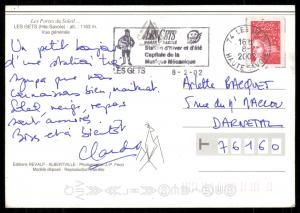 Les Portes du Soleil...
LES GETS (Hte-Savoie) - alt. : 1163 m.
Vue générale
Un petit bonjour
d'une station très
sympa que vous
connaissez bien, maintenant.
Soleil, neige, repos
sont assurés.
Bises et à bientôt
Claude
LES GETS
Station d'hiver et d'été
Capitale de la
Musique Mécanique
LES GETS
8-2-02
74 LES GETS
HAUTE-SAVOIE
Arlette BACQUET
5 rue du Mal MACLOU
DARNETAL
76160
Editions REVALP - ALBERTVILLE -
Modèle déposé - Reproduction interdite